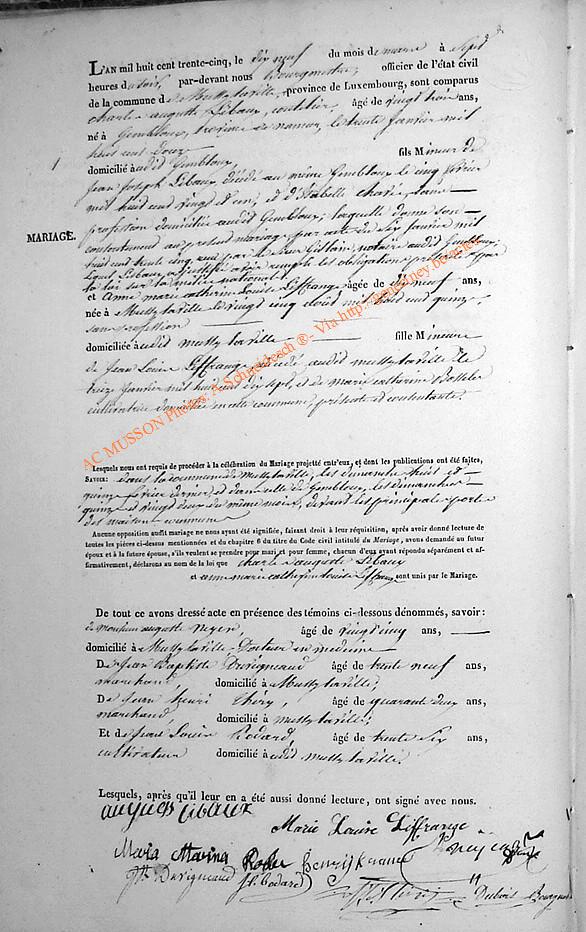 L'AN mil huit cent trente-cinq, le dix neuf du mois de mars à sept
heures du soir, par-devant nous Bourgmestre, officier de l'état civil
de la commune de Mussy la ville, province de Luxembourg, sont comparus
charle auguste Libaux, âgé de vingt trois ans,
né à Gembloux, province de namur, le trente janvier mil
huit cent douze
domicilié audit Gembloux, fils Mineur de
Jean Joseph Libaux, décédé au même Gembloux le cinq février
mil huit cent vingt et un, et d'Isabelle charle, sans
profession domiciliée audit Gembloux, laquelle donne son
consentement au présent mariage, par acte du six janvier mil
huit cent trente cinq, par le sieur notaire audit Gembloux,
lequel Libaux a justifié avoir rempli les obligations par
la loi sur la milice nationale
MARIAGE.
et Anne marie catherine Louise Liffrange âgée de dix neuf ans,
née à Mussy la ville le vingt cinq août mil huit cent quinze
sans profession
domiciliée audit mussy la ville fille Mineure
de Jean Louis Liffrange décédé audit mussy la ville le
treize janvier mil huit cent dix sept, et de marie catherine
cultivatrice domiciliée en cette commune, présente et consentante.
Lesquels nous ont requis de procéder à la célébration du Mariage projetté entr'eux, et dont les publications ont été faites,
SAVOIR: dans la commune de Mussy la ville, les dimanche huit et
quinze février dernier, et dans celle de Gembloux, les dimanches
quinze et vingt deux du même mois, devant les principales portes
des maisons commune
Aucune opposition audit mariage ne nous ayant été signifiée, faisant droit à leur réquisition, après avoir donné lecture de
toutes les pièces ci-dessus mentionnées et du chapitre 6 du titre du Code civil intitulé du Mariage, avons demandé au futur
époux et à la future épouse, s'ils veulent se prendre pour mari et pour femme, chacun d'eux ayant répondu séparément et af-
firmativement, déclarons au nom de la loi que charle auguste Libaux
et anne marie catherine louise Liffrange sont unis par le Mariage.
De tout ce avons dressé acte en présence des témoins ci-dessous dénommés, savoir:
de monsieur auguste neyen, âgé de vingt cinq ans,
domicilié à Mussy la ville Docteur en médecine
De Jean Baptiste Duvigneaud âgé de trente neuf ans,
marchand, domicilié à Mussy la ville;
De Jean henri Théry, âgé de quarante deux ans,
marchand, domicilié à mussy la ville;
Et de Jean Louis Rodard, âgé de trente six ans,
cultivateur domicilié audit mussy la ville.
Lesquels, après qu'il leur en a été aussi donné lecture, ont signé avec nous.
auguste Libaux
Marie Louise Liffrange
Maria
Duvigneaud
Dubois Bourgmestre
AC MUSSON Photos: A Schneidesch ®- Via http://